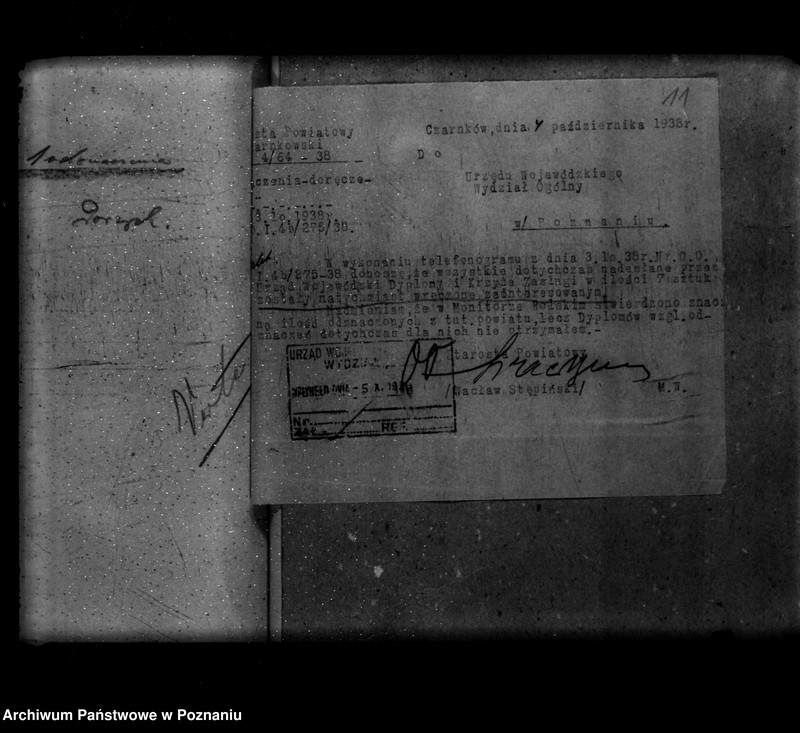 11
sta Powiatowy
arnkowski
4/64 - 38
Czarnków, dnia 4 października 1938r.
D o
Urzędu Wojewódzkiego
Wydział Ogólny
w/ P o z n a n i u .
czenia-doręcze-
3.10.1938r.
.I.4b/275/38.
W wykonaniu telefonogramu z dnia 3.10.38r.Nr.O.O.
I.4b/275-38 donoszę, że wszystkie dotychczas nadesłane przez
Urząd Wojewódzki Dyplomy i Krzyże Zasługi w ilości 7 sztuk
zostały natychmiast wręczone zainteresowanym.
Nadmieniam, że w Monitorze Polskim stwierdzono znacz
ną ilość odznaczonych z tut. powiatu, lecz Dyplomów wzgl. od-
znaczeń dotychczas dla nich nie otrzymałem.-
tarosta Powiatowy
/Wacław Stępiński/
M.W.
URZĄD WOJ
WYDZIA
DNIA - 5 X. 19
Nr.
ZAŁ. REF.
Archiwum Państwowe w Poznaniu